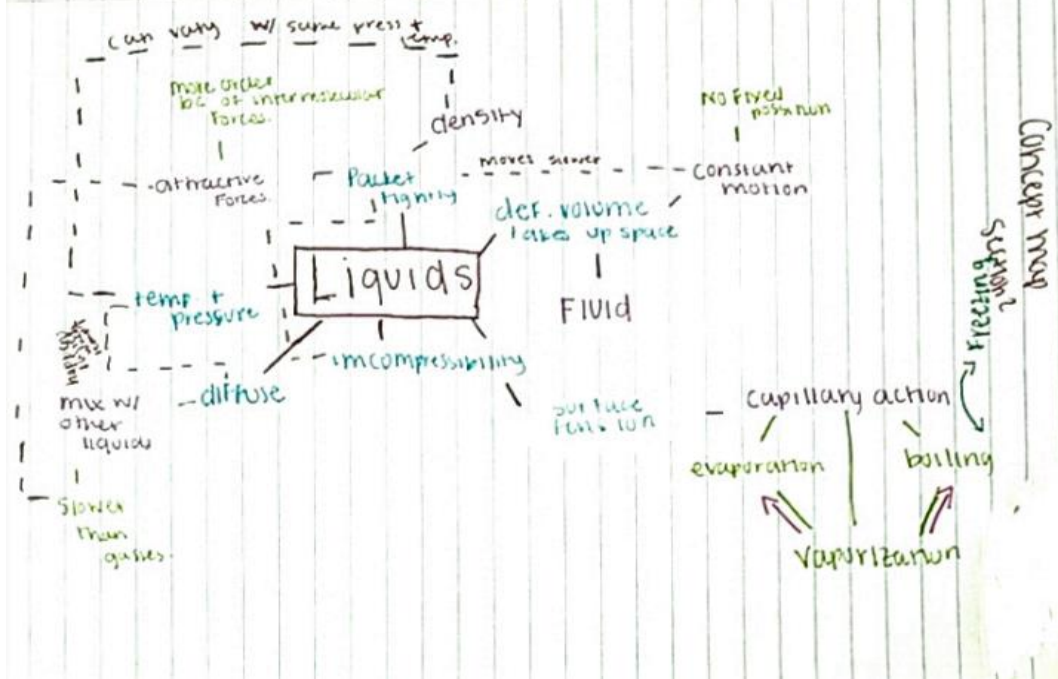 can vary w/ same press +
temp.
more order
bc of intermolecular
forces.
density
No fixed
position
attractive
forces.
Packet
tightly
moves slower
constant
motion
def. volume
takes up space
Liquids
Fluid
temp. +
pressure
imcompressibility
diffuse
mix w/
other
liquids
slower
than
gasses.
surface
tension
capillary action
evaporation
boiling
vaporization
Freezing
Concept map
Section 2